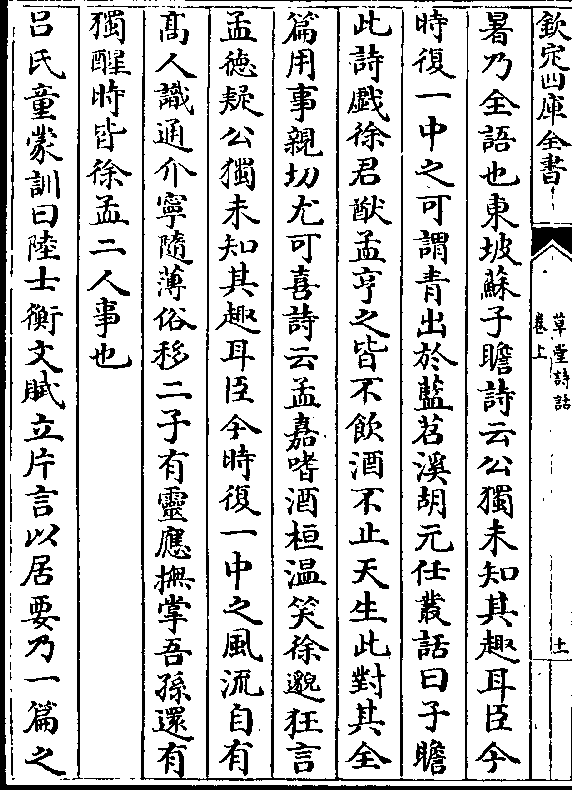 欽定四庫全書
草堂詩話
卷上
十一
暑乃全語也東坡蘇子瞻詩云公獨未知其趣耳臣今
時復一中之可謂青出於藍苕溪胡元任叢話曰子瞻
此詩戲徐君猷孟亨之皆不飲酒不止天生此對其全
篇用事親切尤可喜詩云孟嘉嗜酒桓温笑徐邈狂言
孟徳疑公獨未知其趣耳臣今時復一中之風流自有
髙人識通介寧隨薄俗移二子有靈應撫掌吾孫還有
獨醒時皆徐孟二人事也
吕氏童蒙訓曰陸士衡文賦立片言以居要乃一篇之